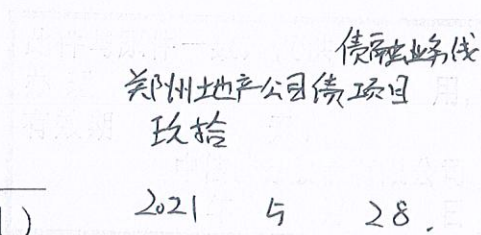 债融业务线
郑州地产公司债项目
玖拾
2021 5 28.
)